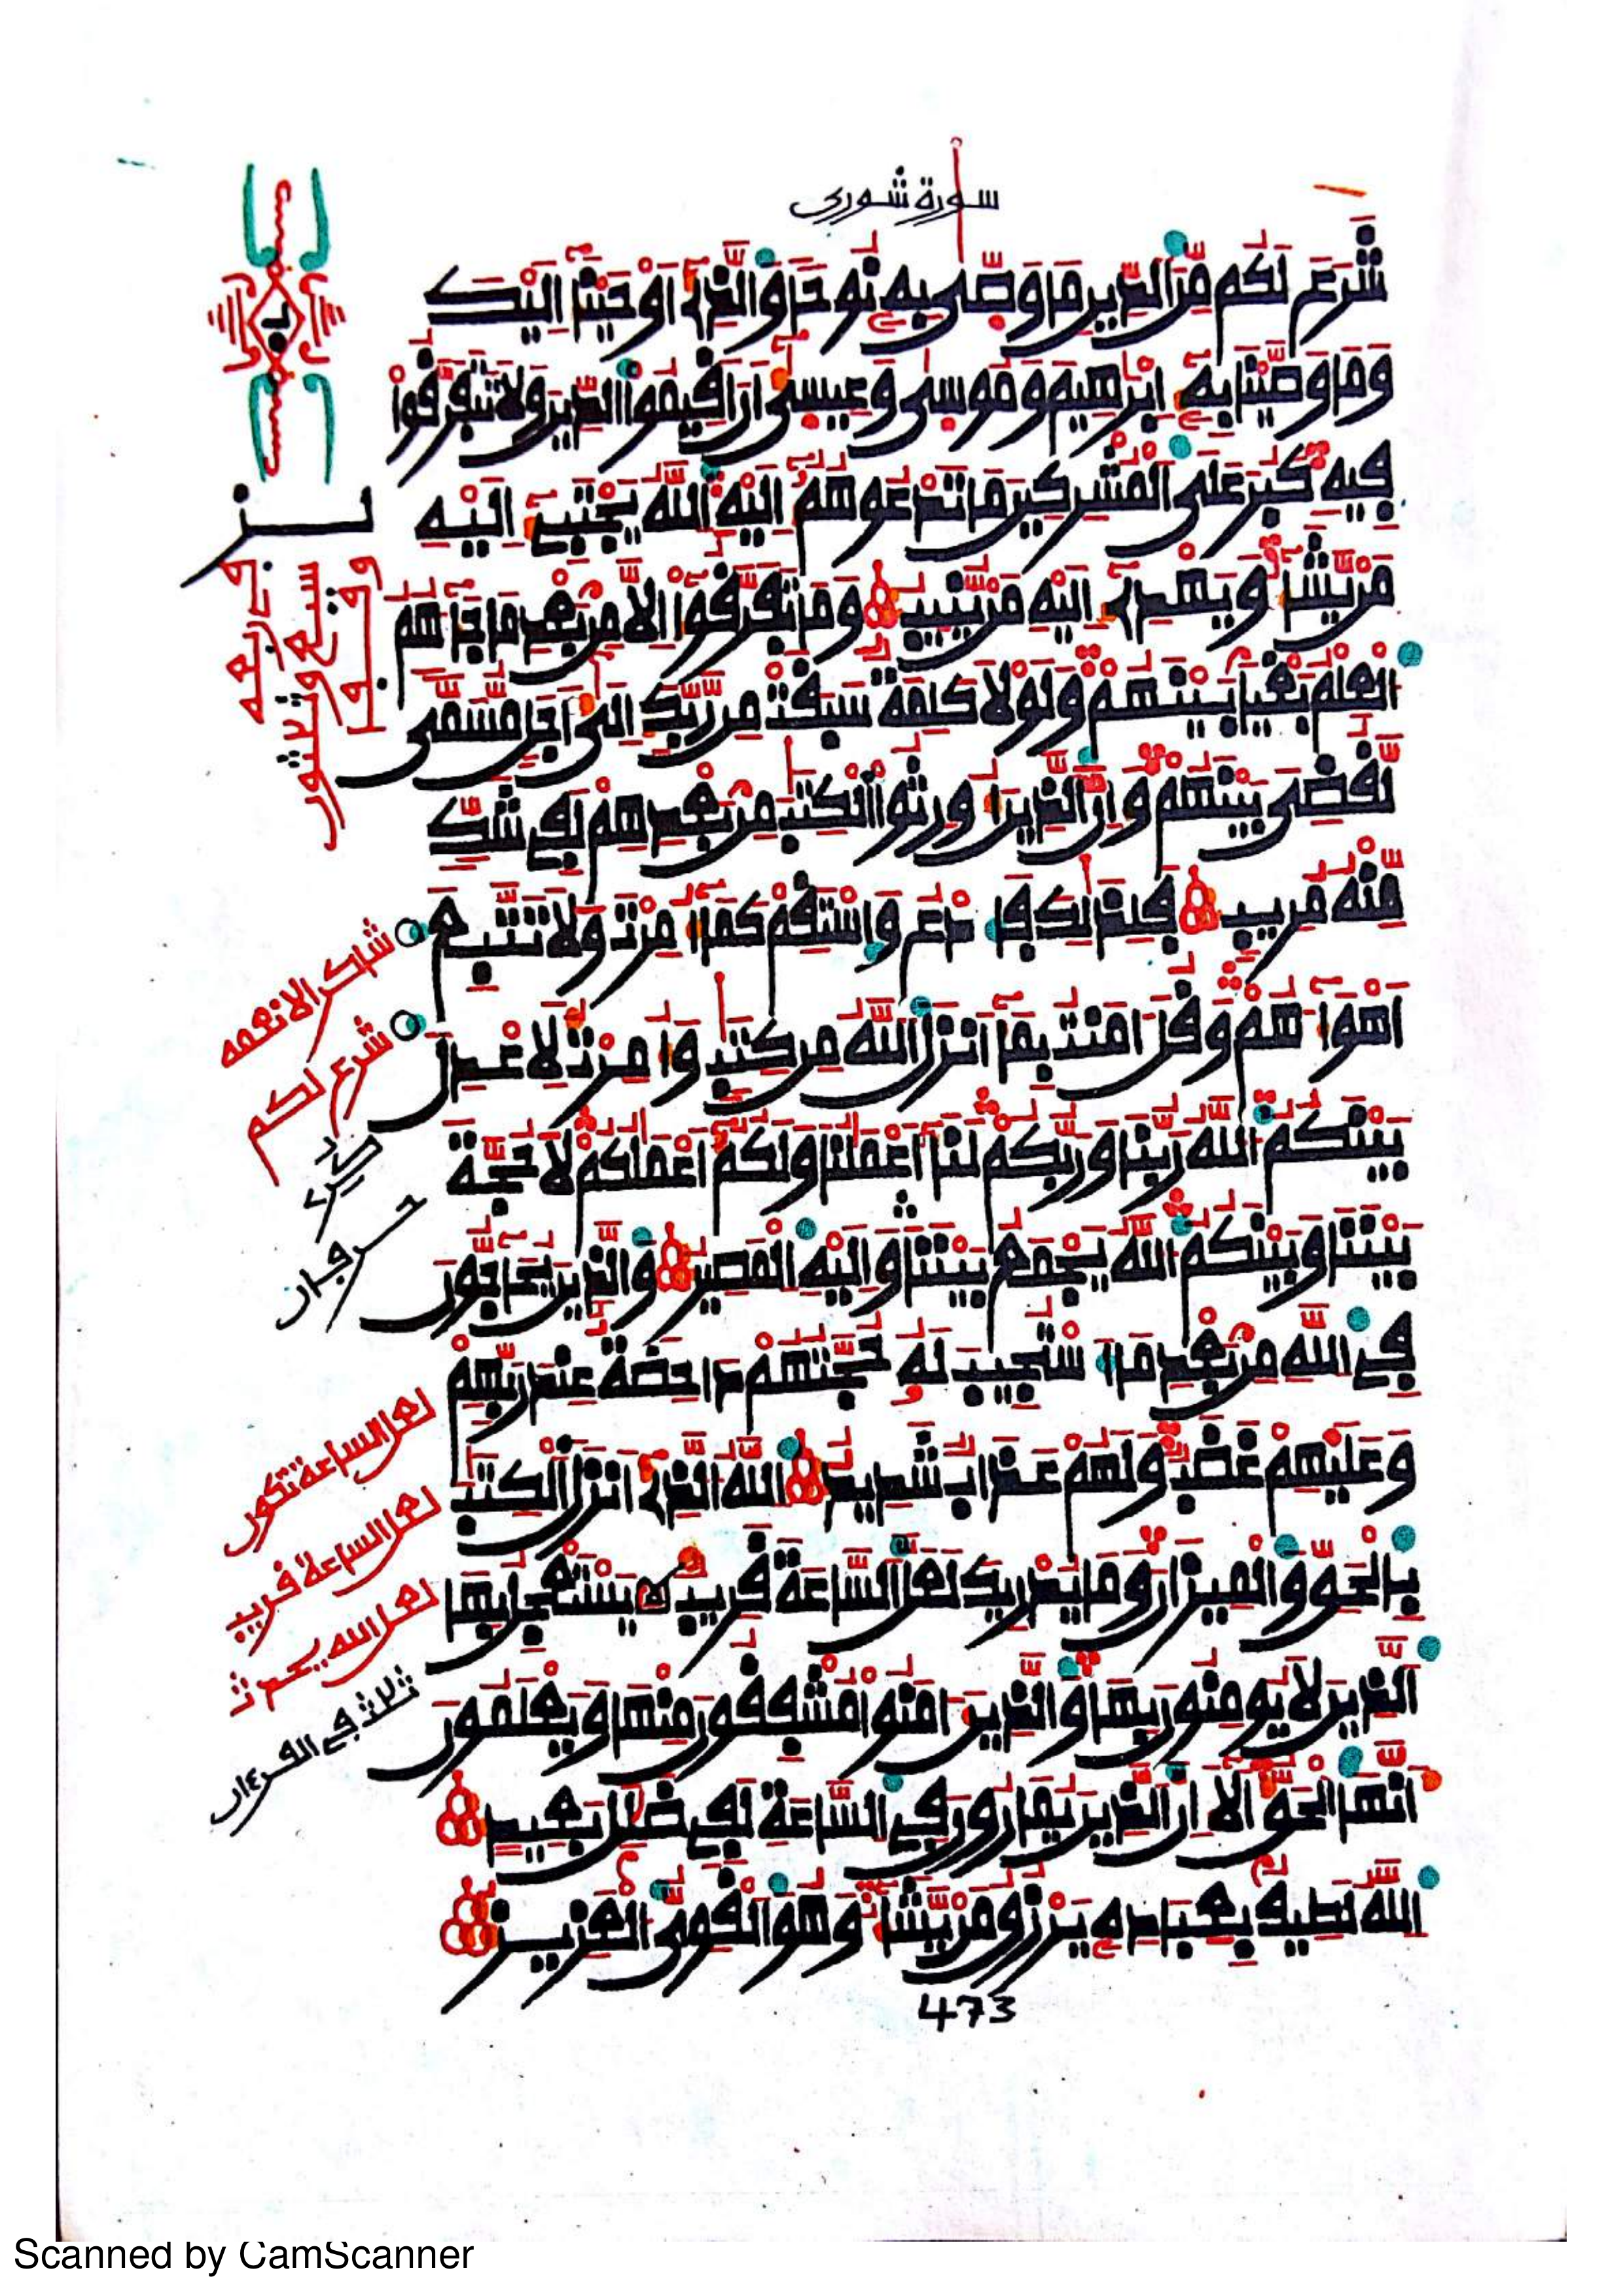 سورة شورى
شَرَعَ لَكُم مِّنَ الدِّينِ مَا وَصّٰى بِهِ نُوحًا وَالَّذِى أَوْحَيْنَا إِلَيْكَ
وَمَا وَصَّيْنَا بِهِ إِبْرٰهِيمَ وَمُوسٰى وَعِيسٰى أَنَ اقِيمُوا الدِّينَ وَلَا تَتَفَرَّقُوا
فِيهِ كَبُرَ عَلَى الْمُشْرِكِينَ مَا تَدْعُوهُمُ إِلَيْهِ اللَّهُ يَجْتَبِى إِلَيْهِ
مَنْ يَّشَاءُ وَيَهْدِى إِلَيْهِ مَنْ يُّنِيبُ وَمَا تَفَرَّقُوا إِلَّا مِنْ بَعْدِ مَا جَاءَهُمُ
الْعِلْمُ بَغْيًا بَيْنَهُمْ وَلَوْلَا كَلِمَةٌ سَبَقَتْ مِن رَّبِّكَ إِلٰى أَجَلٍ مُّسَمًّى
لَّقُضِىَ بَيْنَهُمْ وَإِنَّ الَّذِينَ أُورِثُوا الْكِتٰبَ مِنْ بَعْدِهِمْ لَفِى شَكٍّ
مِّنْهُ مُرِيبٍ فَلِذٰلِكَ فَادْعُ وَاسْتَقِمْ كَمَا أُمِرْتَ وَلَا تَتَّبِعَ
أَهْوَاءَهُمْ وَقُلَ اٰمَنْتُ بِمَا أَنْزَلَ اللَّهُ مِن كِتٰبٍ وَأُمِرْتُ لِأَعْدِلَ
بَيْنَكُمُ اللَّهُ رَبُّنَا وَرَبُّكُمْ لَنَا أَعْمٰلُنَا وَلَكُمُ أَعْمٰلُكُمْ لَا حُجَّةَ
بَيْنَنَا وَبَيْنَكُمُ اللَّهُ يَجْمَعُ بَيْنَنَا وَإِلَيْهِ الْمَصِيرُ وَالَّذِينَ يُحَاجُّونَ
فِى اللَّهِ مِنْ بَعْدِ مَا اسْتُجِيبَ لَهُ حُجَّتُهُمْ دَاحِضَةٌ عِنْدَ رَبِّهِمْ
وَعَلَيْهِمْ غَضَبٌ وَلَهُمْ عَذَابٌ شَدِيدٌ اللَّهُ الَّذِى أَنْزَلَ الْكِتٰبَ
بِالْحَقِّ وَالْمِيزَانَ وَمَا يُدْرِيكَ لَعَلَّ السَّاعَةَ قَرِيبٌ يَسْتَعْجِلُ بِهَا
الَّذِينَ لَا يُومِنُونَ بِهَا وَالَّذِينَ اٰمَنُوا مُشْفِقُونَ مِنْهَا وَيَعْلَمُونَ
أَنَّهَا الْحَقُّ أَلَا إِنَّ الَّذِينَ يُمَارُونَ فِى السَّاعَةِ لَفِى ضَلٰلٍ بَعِيدٍ
اللَّهُ لَطِيفٌ بِعِبَادِهِ يَرْزُقُ مَنْ يَّشَاءُ وَهُوَ الْقَوِىُّ الْعَزِيزُ
شاكر الانعمه
شرع لكم
لعل الساعة تكون
لعل الساعة قريب
لعل الله يحدث
ثلاث في القرءان
473
Scanned by CamScanner